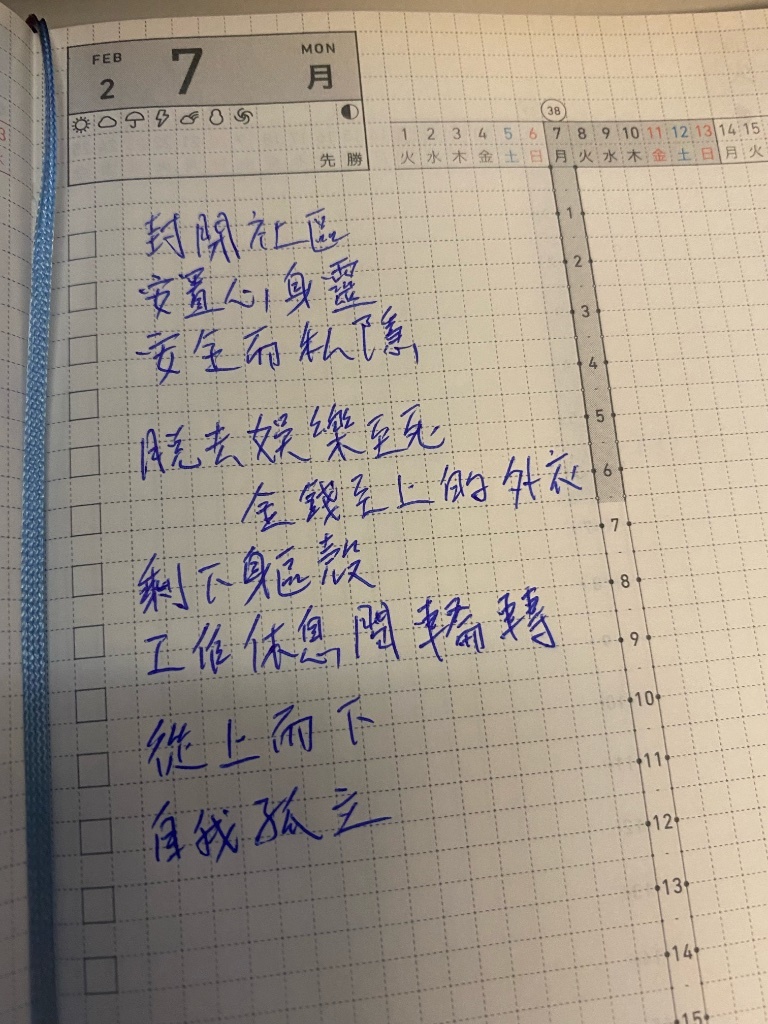 FEB
2
7
MON
月
先勝
38
1 2 3 4 5 6 7 8 9 10 11 12 13 14 15
火 水 木 金 土 日 月 火 水 木 金 土 日 月 火
封閉社區
安置心身靈
安全而私隱
脱去娛樂至死
金錢至上的外衣
剩下身軀殼
工作休息間輪轉
從上而下
自我孤立
1
2
3
4
5
6
7
8
9
10
11
12
13
14
15